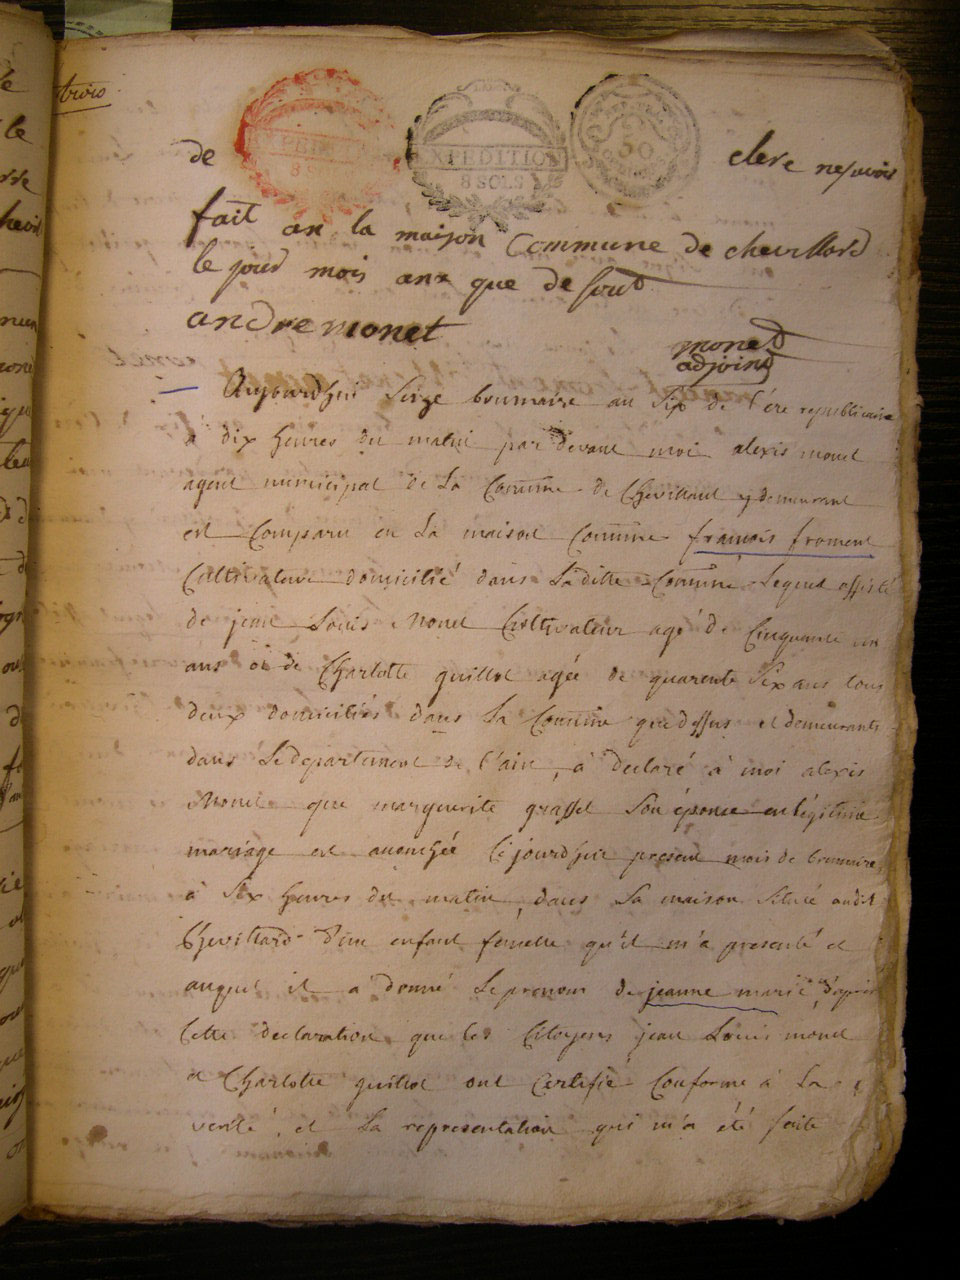 trois
EXPEDITION
8 SOLS
EXPEDITION
8 SOLS
50
de clere ne savoir
fait an la maison Commune de chevillard
le jour mois anx que de sout
andre monet
monet
adjoint
Aujourdhui Seize brumaire an Six de l'ére republicaine
a dix heures du matin par devant moi alexis monet
agent municipal de La Comune de Chevillard y demeurant
est Comparu en La maison Comune framois froment
Cultivateur domicilié dans Laditte Comune Lequel assisté
de jean Louis Monet Cultivateur agé de Cinquante un
ans et de Charlotte guillot agée de quarente Six ans tous
deux domiciliés dans La Comune que dessus et demeurants
dans Le departement de l'ain, a declaré à moi alexis
Monet que marguerite grasset Son éponce en légitime
mariage est auouchée Cejourdhui present mois de brumaire
à Six heures du matin, dans Sa maison Situeé audit
Chevillard d'un enfant femelle qu'il m'a presenté et
auquel il a donné Le prenom de jeanne marie, d'après
Cette declaration que les Citoyens jean Louis monet
et Charlotte guillot ont Certifié Conforme à La
verité, et La representation qui m'a été faite